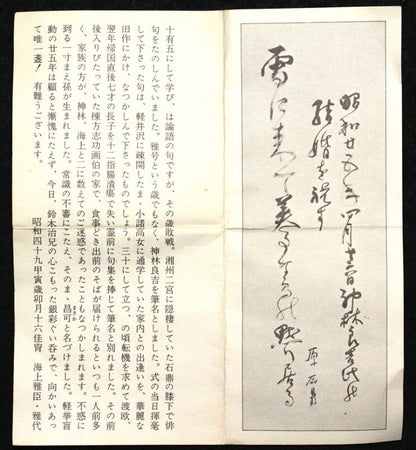 昭和廿五年四月十六日神林良吉氏の
結婚を祝す
雪に来て美事な鳥の黙り居る
原石鼎
十有五にして学び、は論語の句ですが、その歳敗戦。湘州二宮に隠棲していた石鼎の膝下で俳
句をたのしんでいました。雅号という歳でもなく、神林良吉を筆名としました。式の当日揮毫
して下さった句は、軽井沢に疎開したまゝ小諸高女に通学していた家内との出逢いを、華麗な
旧作にかけ、なつかしんで下さったものでしょう。三十にして立つ、の頃転機を求めて渡欧、
翌年帰国直後七才の長子を十二指腸潰瘍で失い霊前に句集を捧じて筆名と別れました。その前
後入りびたっていた棟方志功画伯の家で、食事どき出前のそばが届けられるといつも一人前多
く、家族の方が、神林、海上と二に数えてのご迷惑であったこともなつかしまれます。不惑に
到る一寸まえ孫が生まれました。常識の不審にこたえ、そのまゝ昌可と名づけました。軽挙盲
動の廿五年は顧ると慚愧にたえず、今日、鈴木治兄の心こもった銀彩ぐい呑みで、向かいあっ
て唯一盞！ 有難うございます。
昭和四十九甲寅歳卯月十六佳宵 海上雅臣・雅代